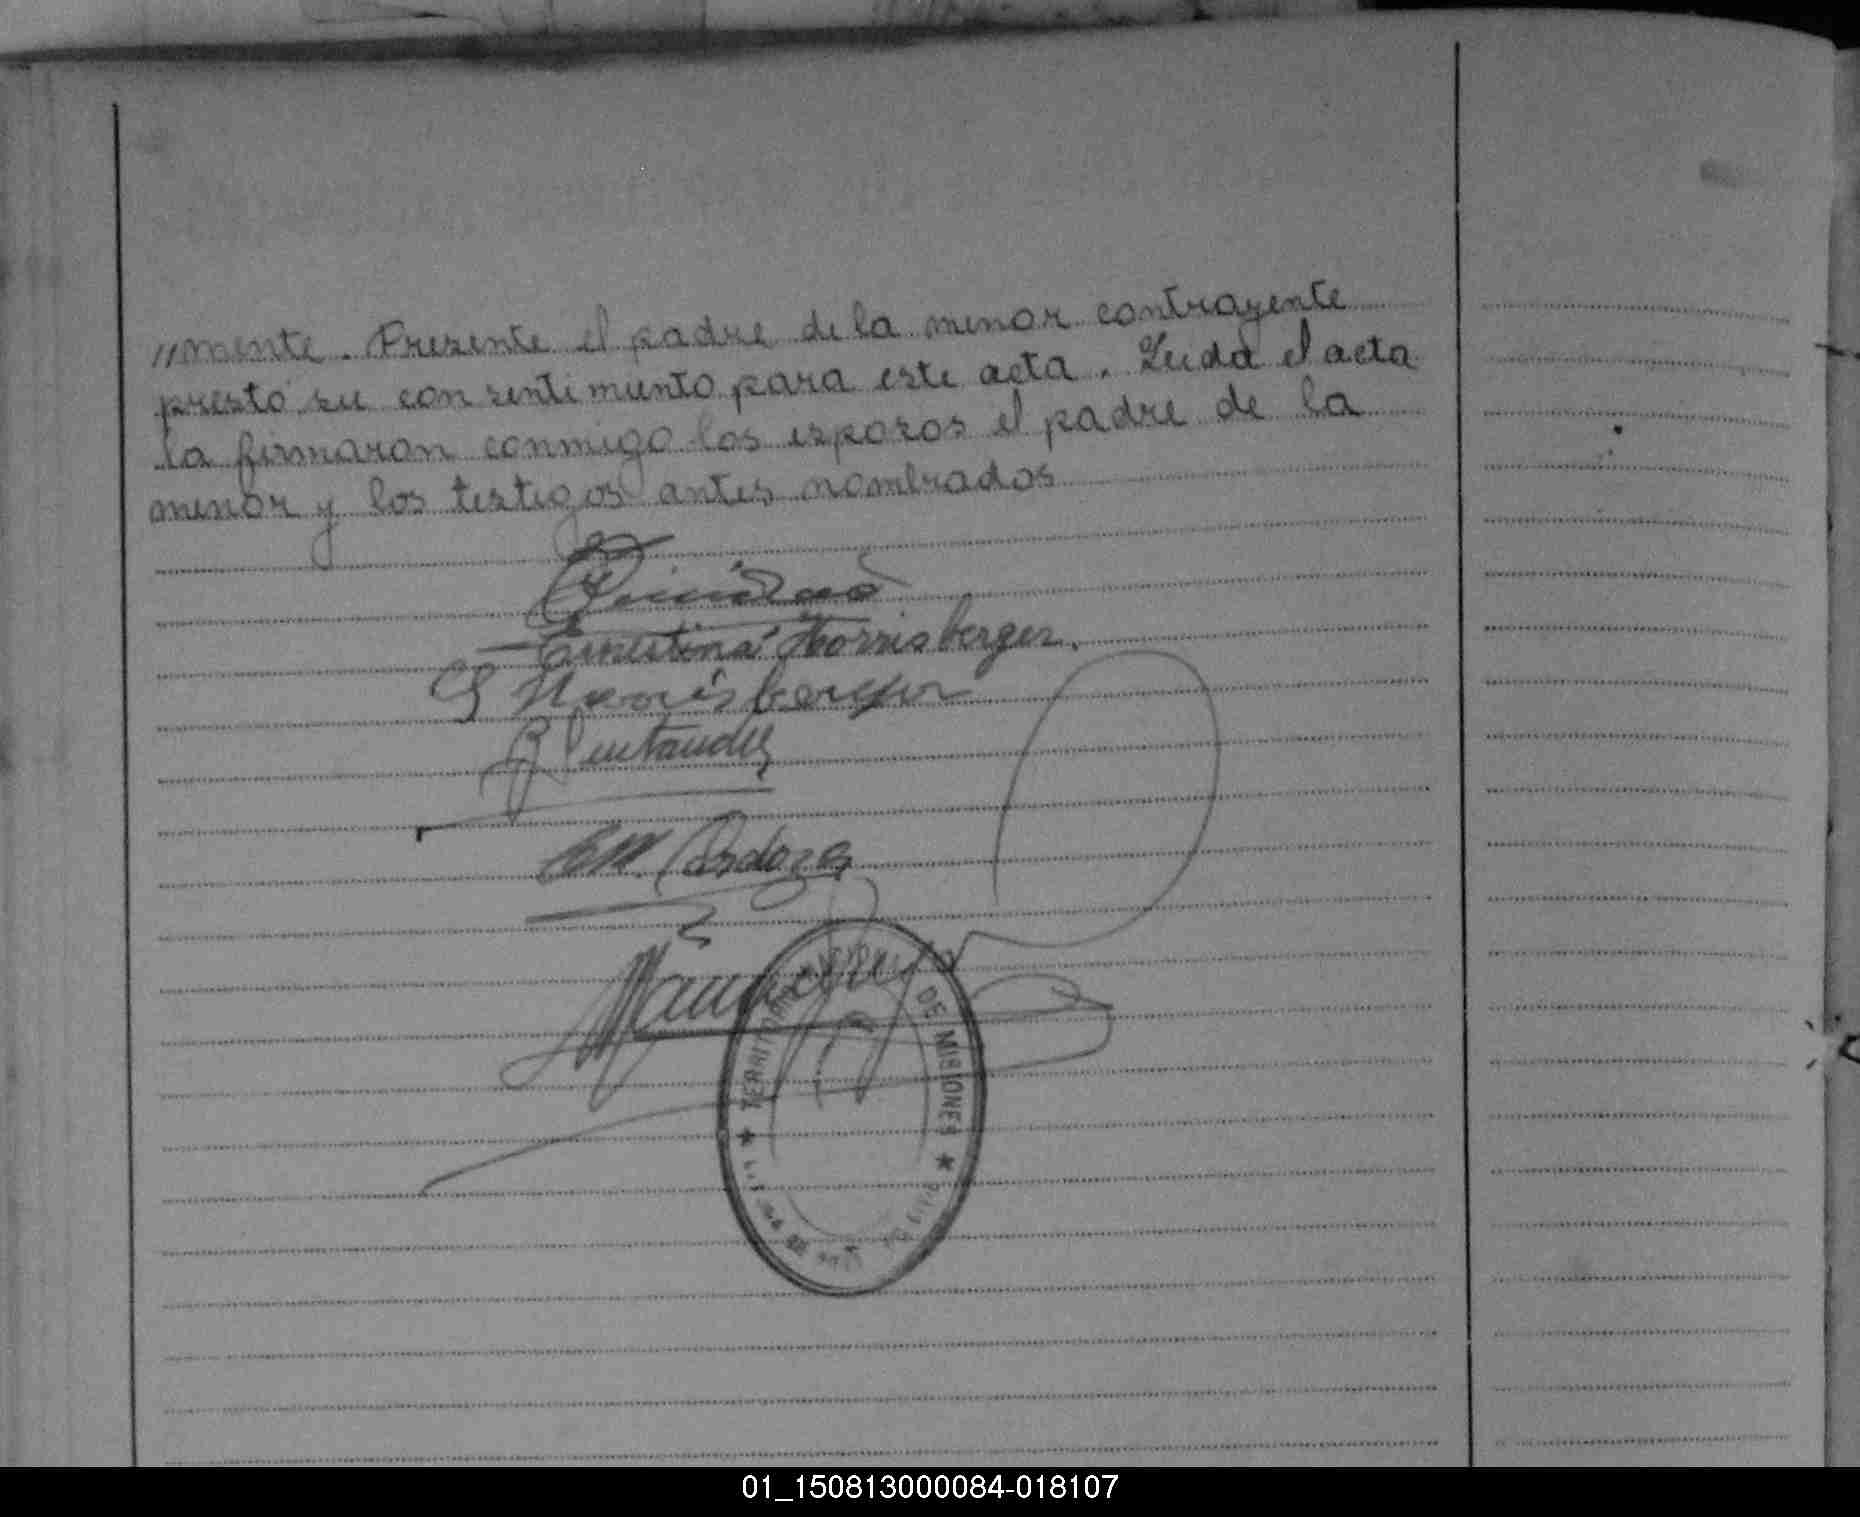 "mente. Presente el padre de la menor contrayente
prestó su consentimiento para este acta. Leida el acta
la firmaron conmigo los esposos el padre de la
menor y los testigos antes nombrados
Ernestina Hornisberger.
Hornisberger
E M. Cardozo
TERRITORIO NACIONAL DE MISIONES
01_150813000084-018107